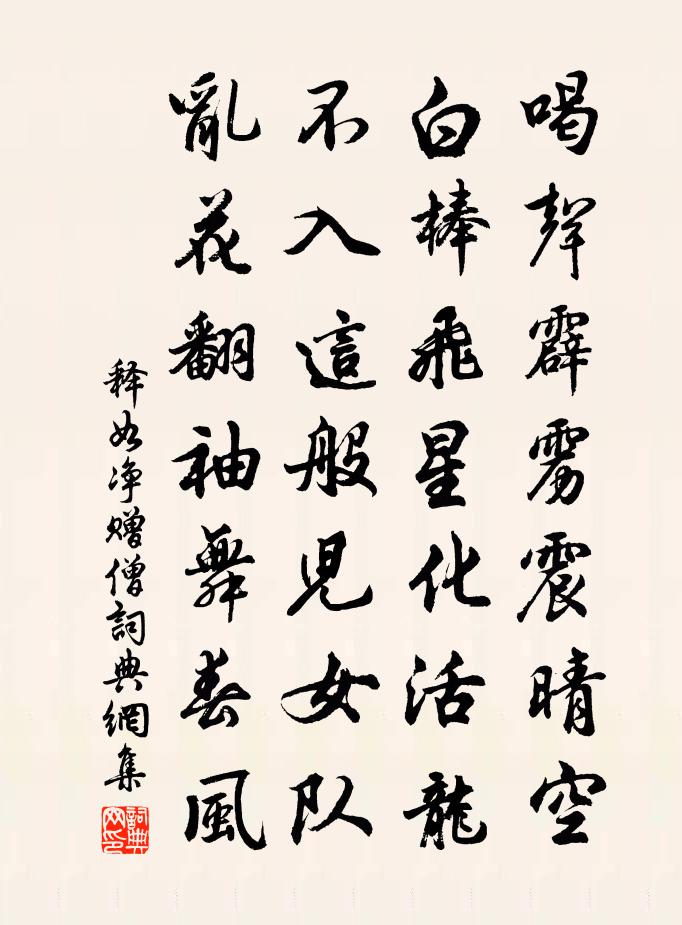 喝聲霹雳震晴空
白棒飛星化活龍
不入這般児女队
亂花翻袖舞春風
释如净赠僧詞典網集
詞典网印